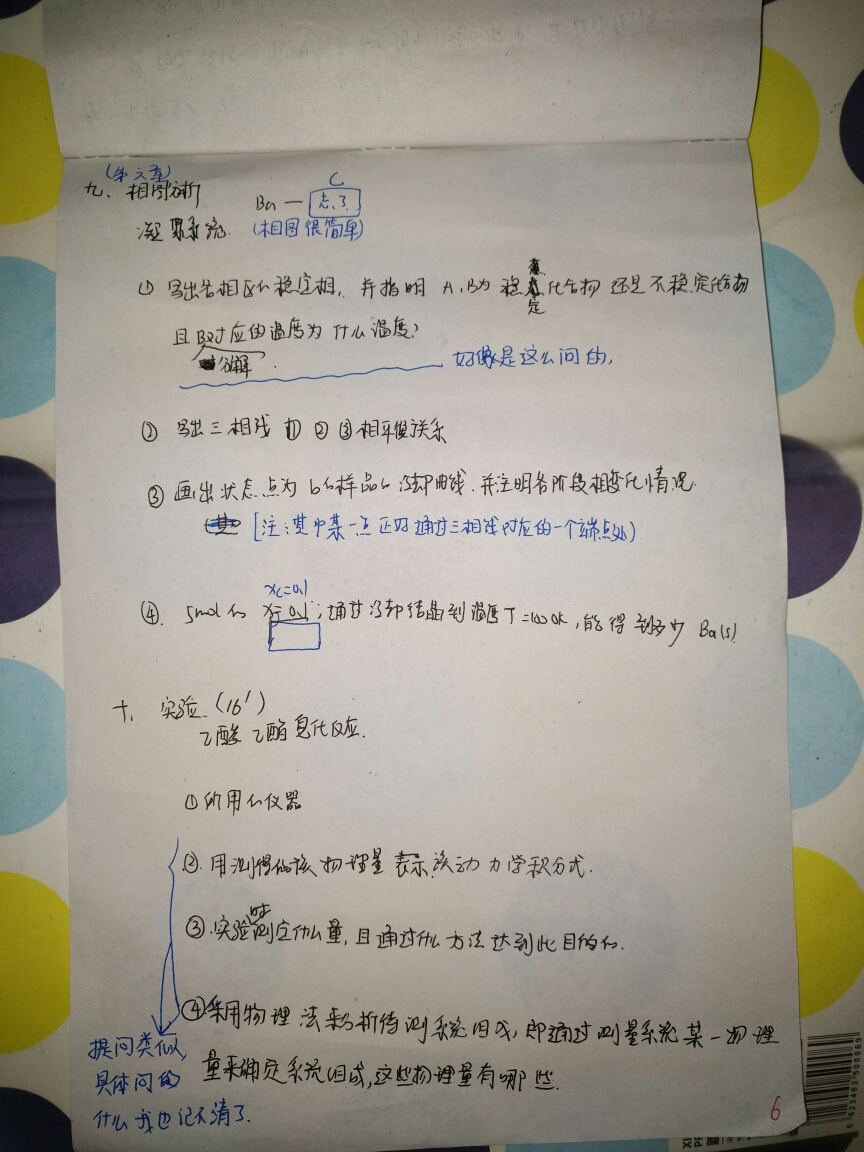 (第六章)
九、相图分析
Ba — C 忘了
凝聚系统. (相图很简单)
① 写出各相区的稳定相, 并指明 A、B为 稳定化合物 还是不稳定化合物
且B对应的温度为 什么温度?
分解
好像是这么问的,
② 写出三相线 ① ② ③相平衡关系
③ 画出状态点为 b的样品的冷却曲线, 并注明各阶段相变化情况.
[注:其中某一点正好通过三相线对应的一个端点处)
xc=0.1
④. 5mol的 x=0.1; 通过冷却结晶到温度T=1000k, 能得到多少 Ba(s)
十、实验. (16')
乙酸乙酯皂化反应.
①所用的仪器
②. 用测得的该物理量表示该动力学积分式.
③.实验时测定什么量, 且通过什么方法达到此目的的.
④采用物理法来分析待测系统组成, 即通过测量系统某一物理
量来确定系统组成,这些物理量有哪些.
提问类似,
具体问的
什么我也记不清了.
6
6 923462 509969